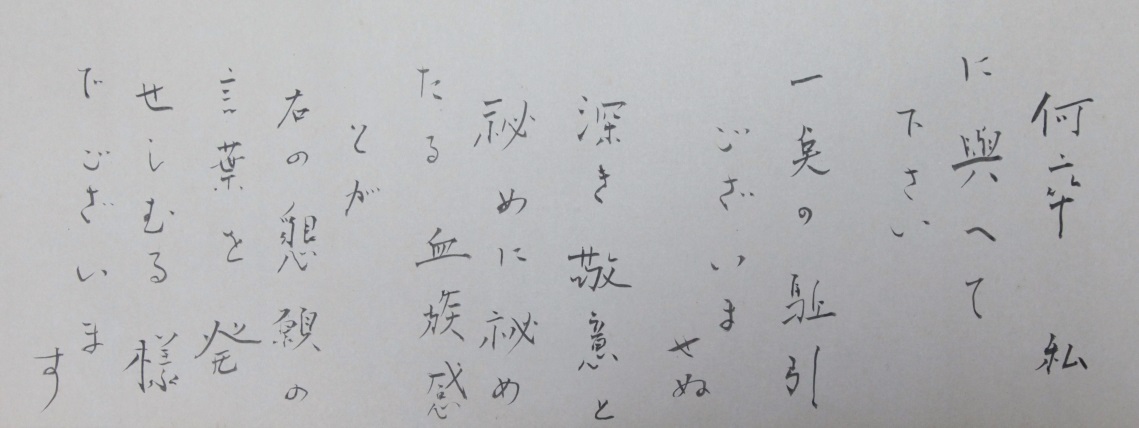 何卒私
に與へて
下さい
一奌の駈引
ございま
せぬ
深き敬意と
祕めに祕め
たる血族感
とが
右の懇願の
言葉を発
せしむる様
でございま
す